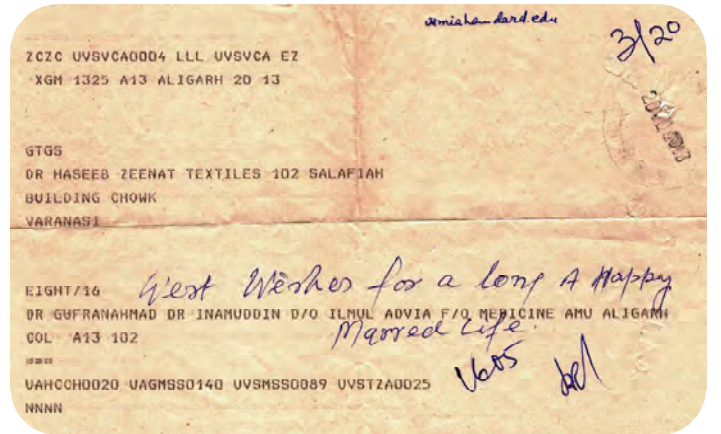 3/20
ZCZC UVSVCA0004 LLL UVSVCA EZ
XGM 1325 A13 ALIGARH 20 13
GTGS
DR HASEEB ZEENAT TEXTILES 102 SALAFIAH
BUILDING CHOWK
VARANASI
Best Wishes for a long A Happy
EIGHT/16
DR GUFRANAHMAD DR INAMUDDIN D/O ILMUL ADVIA F/O MEDICINE AMU ALIGARH
Marred Life.
COL A13 102
===
UAHCCH0020 UAGMSS0140 UVSMSS0089 UVSTZA0025
NNNN